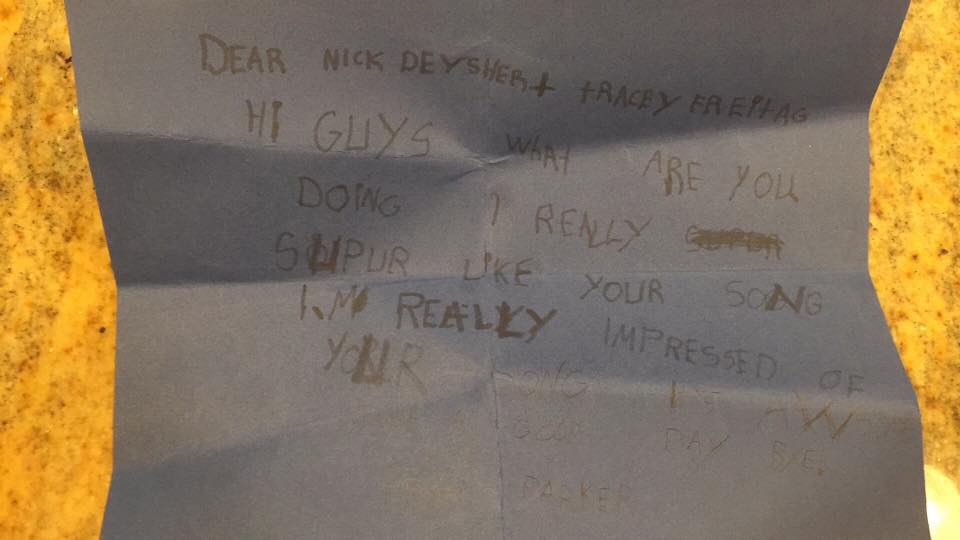 DEAR NICK DEYSHER + TRACEY FREITAG
HI GUYS WHAT ARE YOU
DOING I REALLY
SUPUR LIKE YOUR SONG
I,M REALLY IMPRESSED OF
YOUR SONG
GOOD DAY BYE,
PARKER